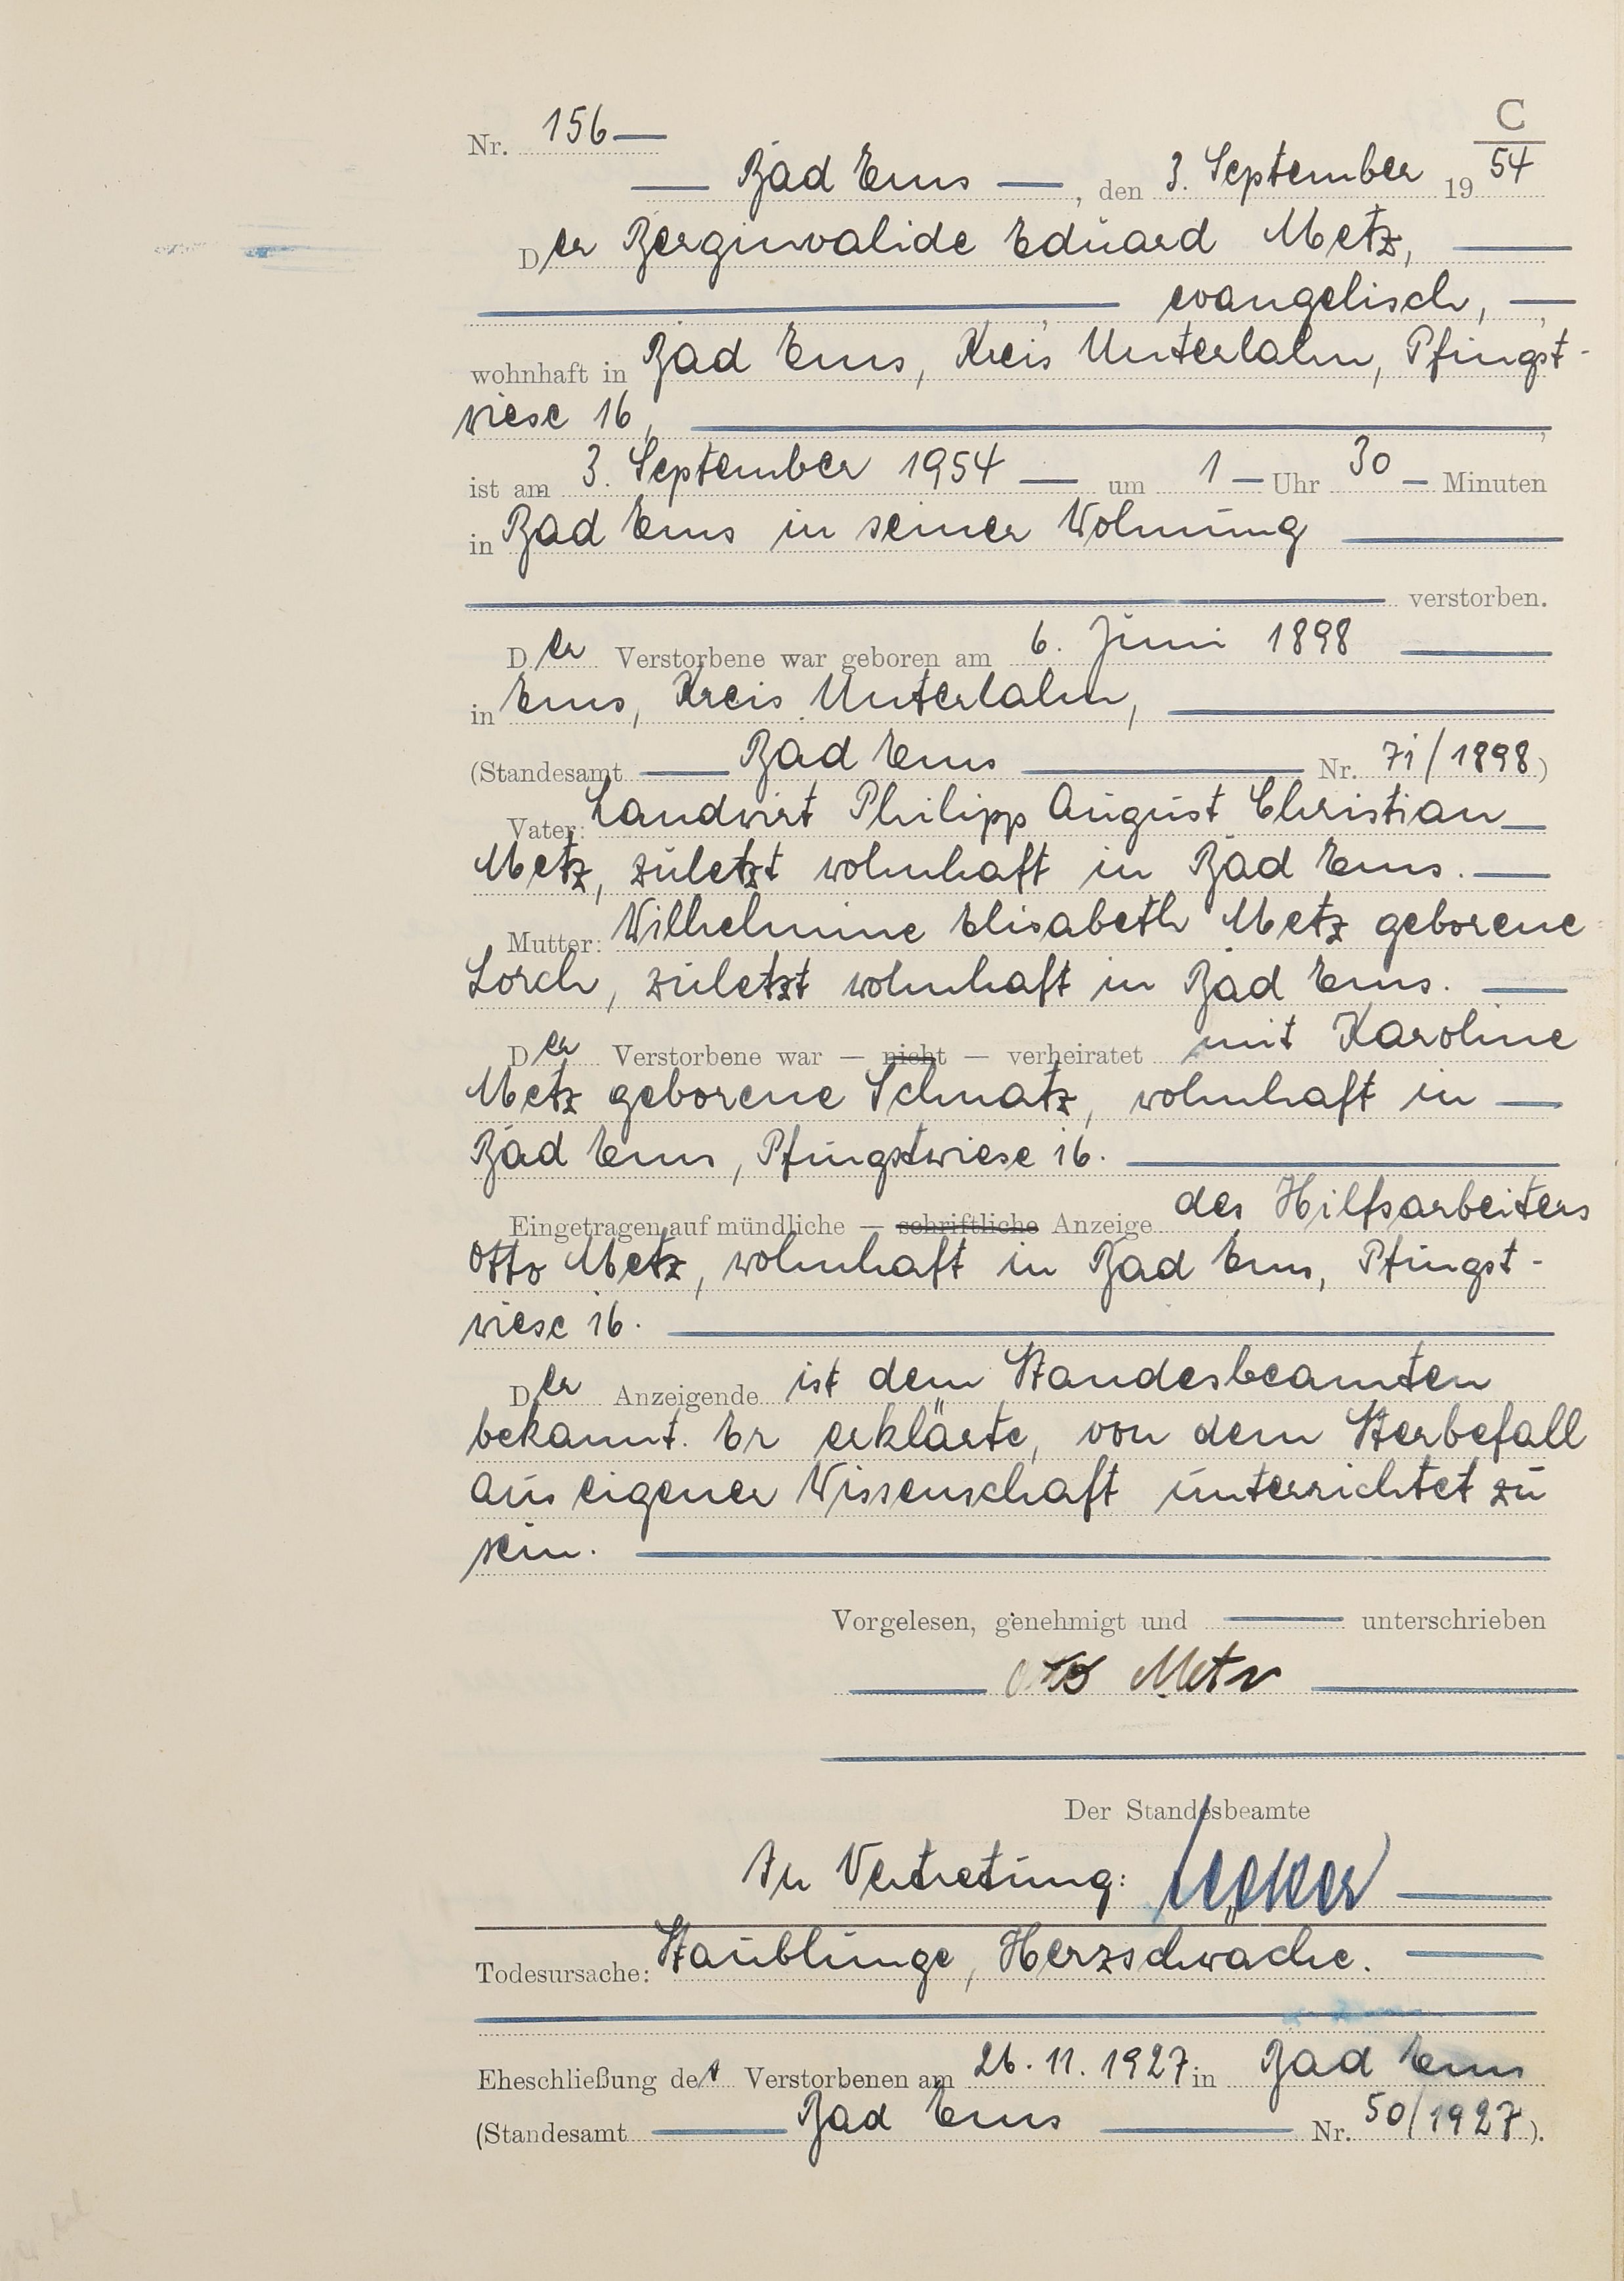 C
Nr. 156
Bad Ems, den 3. September 1954
Der Berginvalide Eduard Metz,
evangelisch,
wohnhaft in Bad Ems, Kreis Unterlahn, Pfingst-
wiese 16,
ist am 3. September 1954 um 1 Uhr 30 Minuten
in Bad Ems in seiner Wohnung
verstorben.
Der Verstorbene war geboren am 6. Juni 1898
in Ems, Kreis Unterlahn,
(Standesamt Bad Ems Nr. 71/1898)
Vater: Landwirt Philipp August Christian
Metz, zuletzt wohnhaft in Bad Ems.
Mutter: Wilhelmine Elisabeth Metz geborene
Lorch, zuletzt wohnhaft in Bad Ems.
Der Verstorbene war — nicht — verheiratet mit Karoline
Metz geborene Schmatz, wohnhaft in
Bad Ems, Pfingstwiese 16.
Eingetragen auf mündliche — schriftliche Anzeige des Hilfsarbeiters
Otto Metz, wohnhaft in Bad Ems, Pfingst-
wiese 16.
Der Anzeigende ist dem Standesbeamten
bekannt. Er erklärte, von dem Sterbefall
aus eigener Wissenschaft unterrichtet zu
sein.
Vorgelesen, genehmigt und unterschrieben
Otto Metz
Der Standesbeamte
In Vertretung:
Todesursache: Staublunge, Herzschwäche.
Eheschließung des Verstorbenen am 26.11.1927 in Bad Ems
(Standesamt Bad Ems Nr. 50/1927).